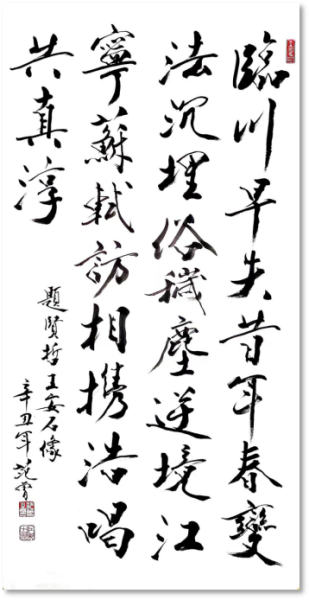 臨川早失昔年春變
法沉埋俗穢塵逆境江
寧蘇軾訪相攜浩唱
共真淳
題賢哲王安石像
辛丑年范曾